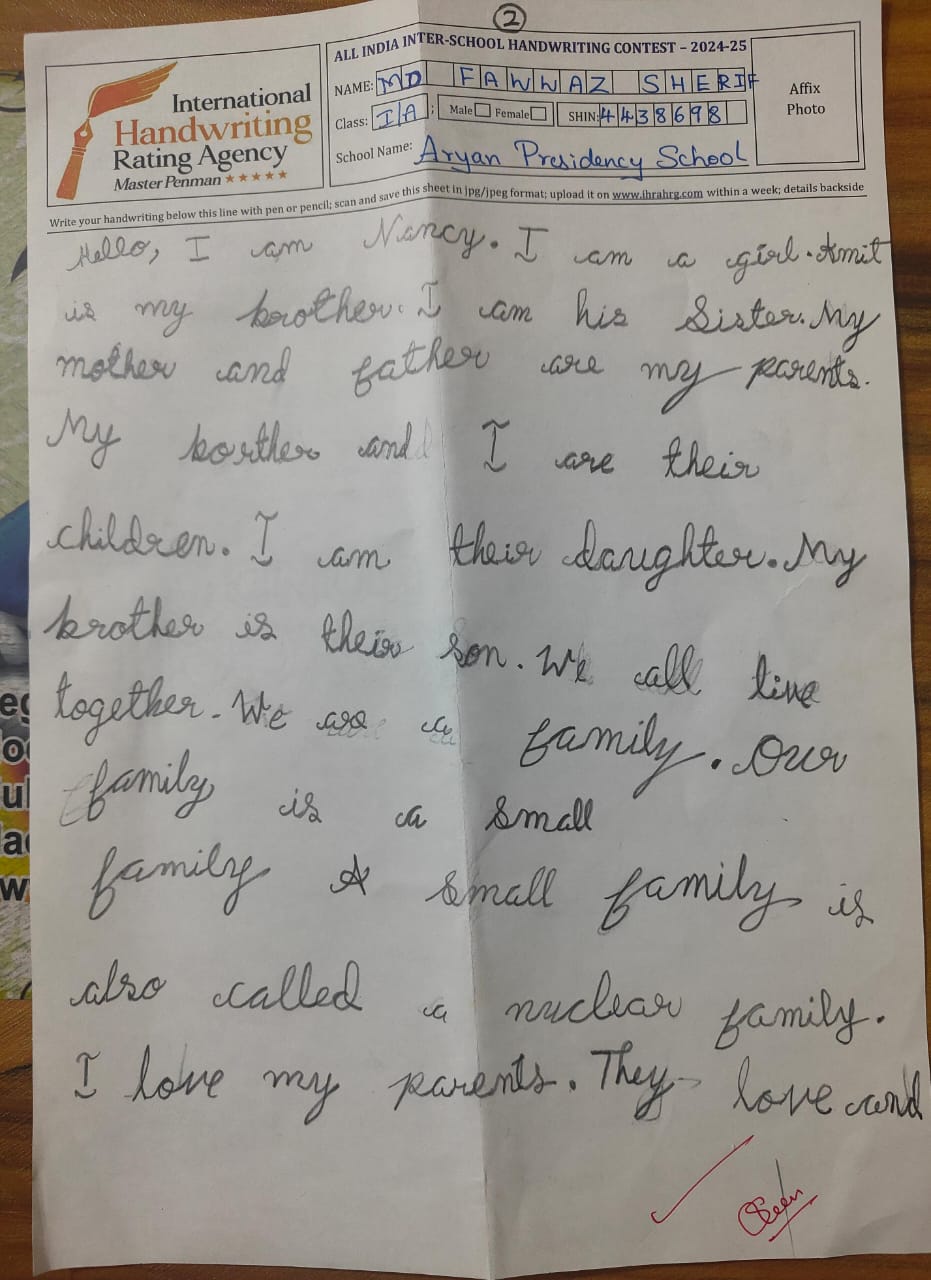 2
ALL INDIA INTER-SCHOOL HANDWRITING CONTEST – 2024-25
International
Handwriting
Rating Agency
Master Penman ★★★★★
NAME: MD FAWWAZ SHERIF
Class: I/A Male Female SHIN: 4438698
School Name: Aryan Presidency School
Affix
Photo
Write your handwriting below this line with pen or pencil; scan and save this sheet in jpg/jpeg format; upload it on www.ihrahrg.com within a week; details backside
Hello, I am Nancy. I am a girl. Amit
is my brother. I am his Sister. My
mother and father are my parents.
My borther and I are their
children. I am their daughter. My
brother is their son. We all live
together. We are a family. Our
family is a small
family A small family is
also called a nuclear family.
I love my parents. They love and
Seen